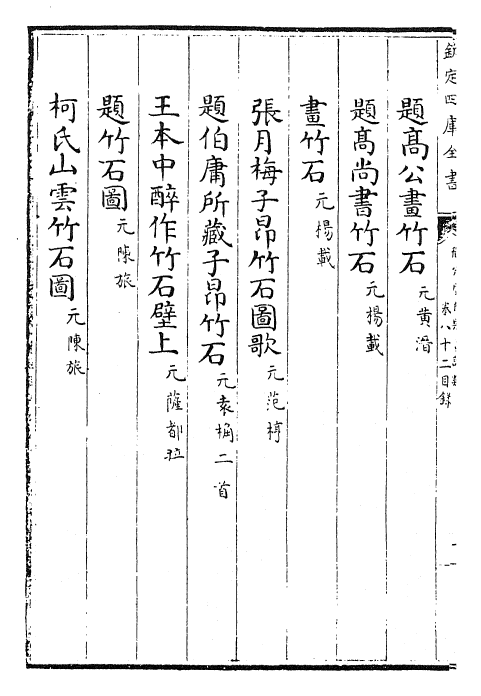 欽定四庫全書
卷八十二目錄
題高公畫竹石 元黃溍
題高尚書竹石 元楊載
畫竹石 元楊載
張月梅子昂竹石圖歌 元范梈
題伯庸所藏子昂竹石 元袁桷二首
王本中醉作竹石壁上 元薩都拉
題竹石圖 元陳旅
柯氏山雲竹石圖 元陳旅